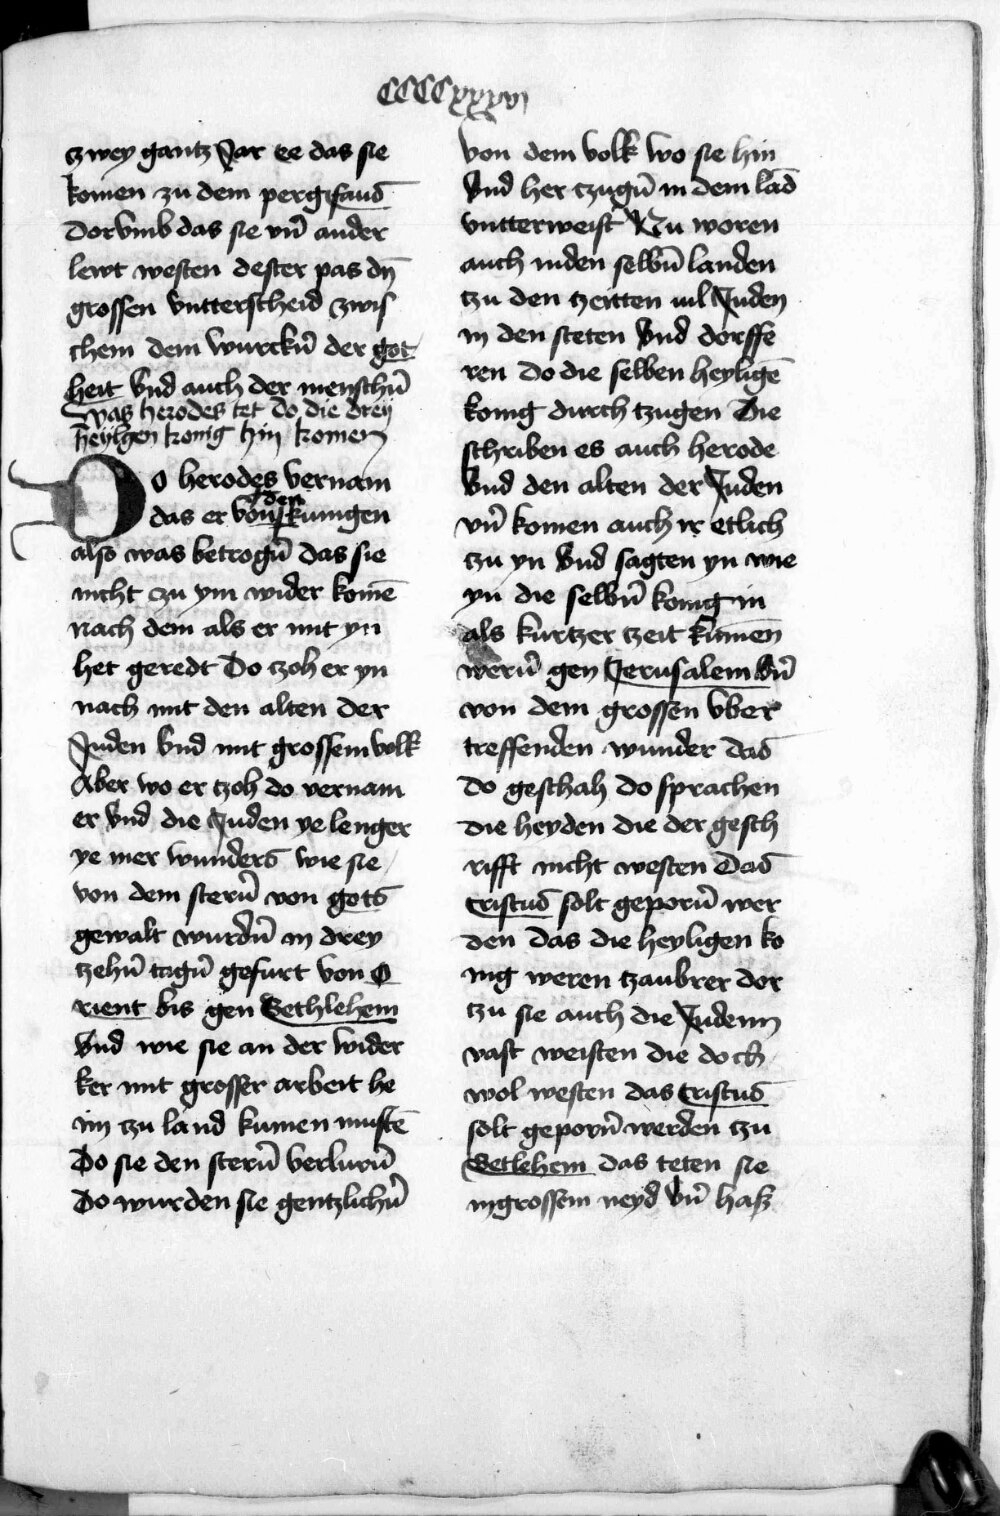 CCCCxxxvi
zwey gantz Jar ee das sie
komen zu dem perg faus̄
Dorvmb das sie vn̄ ander
lewt westen dester pas dȳ
grossen vntterscheid zwis
chem dem wurckn̄ der got
heit vnd auch der menschn̄
Was herodes tet do die drey
heylgen konig hin komen
Do herodes vernam
das er von den kunigen
also was betrogn̄ das sie
nicht czu ym wider komē
nach dem als er mit yn
het geredt Do tzoh er yn
nach mit den alten der
Juden vnd mit grossem volk
Aber wo er tzoh do vernam
er vnd die Juden ye lenger
ye mer wunders wie sie
von dem stern̄ von gots
gewalt wurdn̄ in drey
tzehn̄ tagn̄ gefurt von O
rient bis gen Bethlehem
vnd wie sie an der wider
ker mit grosser arbeit he
im tzu land kumen mustē
Do sie den stern̄ verlurn̄
Do wurden sie gentzlichn̄
von dem volk wo sie hin
vnd her tzugn̄ in dem lād
vntterweist Nu woren
auch inden selbn̄ landen
tzu den tzeitten uil Juden
in den steten vnd dorffe
ren Do die selben heyligē
konig durch tzugen Die
schriben es auch herode
vnd den alten der Juden
vn̄ komen auch ir etlich
tzu yn vnd sagten yn wie
yn die selbn̄ konig in
als kurtzer tzeit kumen
wern̄ gen Jerusalem vn̄
von dem grossen vber
treffenden wunder das
do geschah do sprachen
die heyden die der gesch
rifft nicht westen Das
cristus solt geporn̄ wer
den das die heyligen ko
nig weren tzaubrer dor
tzu sie auch die Judenn
vast weisten die doch
wol westen das cristus
solt geporn̄ werden tzu
Betlehem das teten sie
ingrossem neyd vn̄ hass